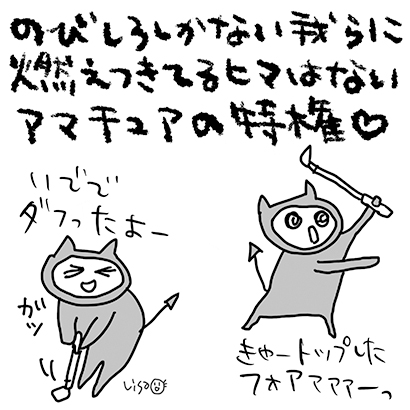 のびしろしかない我らに
燃えつきてるヒマはない
アマチュアの特権♡
いでで
ダフったよー
ガッ
きゃートップした
フォアァァァーっ
Lisa